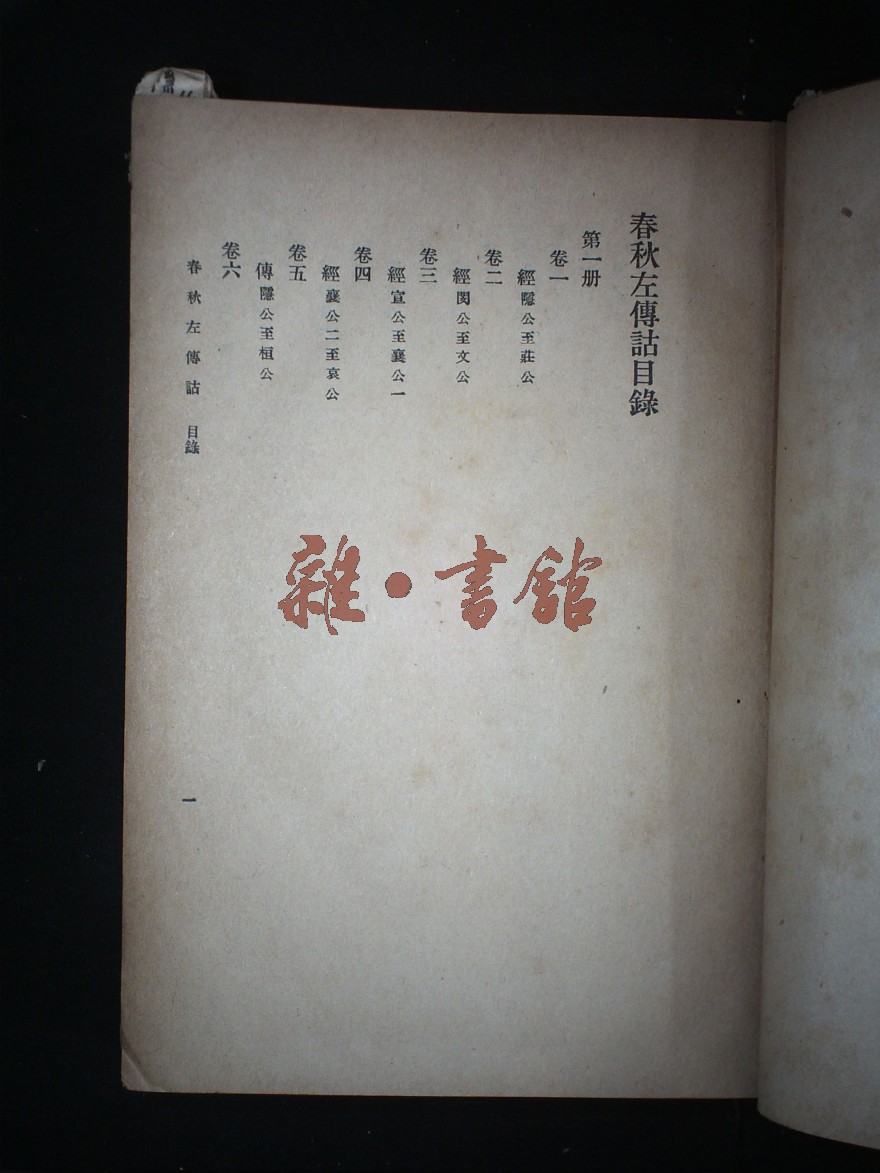 春秋左傳詁目錄
第一册
卷一
經隱公至莊公
卷二
經閔公至文公
卷三
經宣公至襄公一
卷四
經襄公二至哀公
卷五
傳隱公至桓公
卷六
春秋左傳詁 目錄
一
雜·書館